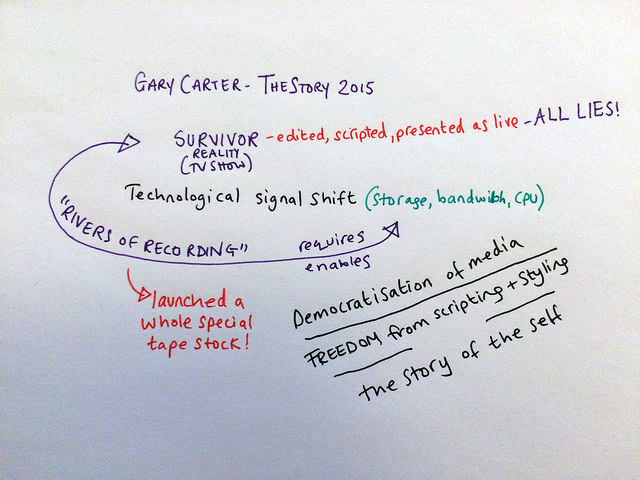 GARY CARTER - THESTORY 2015
SURVIVOR - edited, scripted, presented as live - ALL LIES!
(REALITY TV SHOW)
Technological signal shift (storage, bandwidth, CPU)
"RIVERS OF RECORDING"
requires
enables
launched a
whole special
tape stock!
Democratisation of media
FREEDOM from scripting + styling
the story of the self